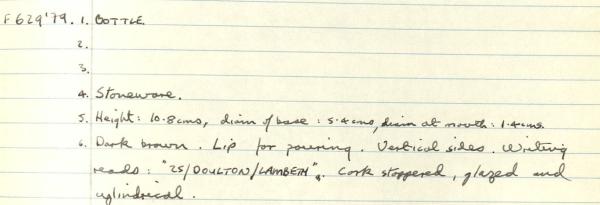 F629'79. 1. BOTTLE.
2.
3.
4. Stoneware.
5. Height: 10.8cms, diam of base: 5.4cms, diam at mouth: 1.4cms.
6. Dark brown. Lip for pouring. Vertical sides. Writing
reads: "25/DOULTON/LAMBETH". Cork stoppered, glazed and
cylindrical.